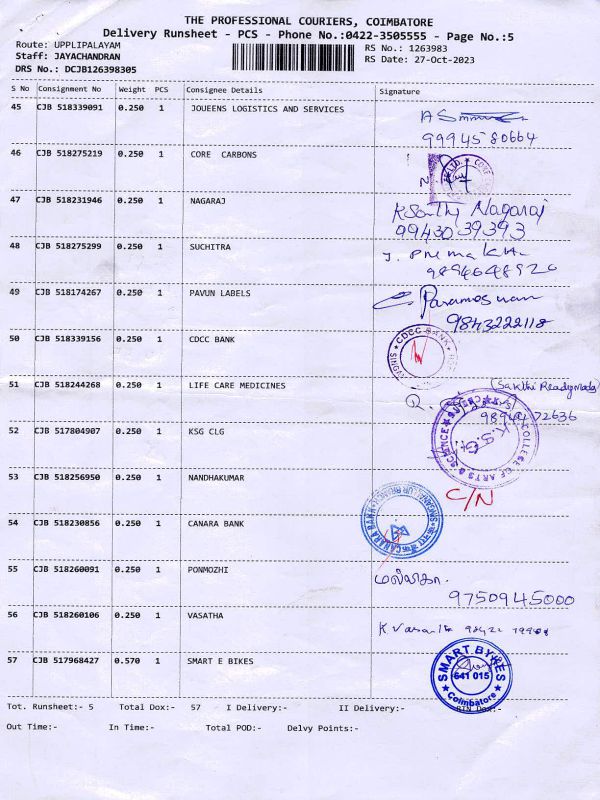 THE PROFESSIONAL COURIERS, COIMBATORE
Delivery Runsheet - PCS - Phone No.:0422-3505555 - Page No.:5
Route: UPPLIPALAYAM
RS No.: 1263983
Staff: JAYACHANDRAN
RS Date: 27-Oct-2023
DRS No.: DCJB126398305
S No Consignment No Weight PCS Consignee Details Signature
45 CJB 518339091 0.250 1 JOUEENS LOGISTICS AND SERVICES
9994580664
46 CJB 518275219 0.250 1 CORE CARBONS
47 CJB 518231946 0.250 1 NAGARAJ
Nagaraj
9943039393
48 CJB 518275299 0.250 1 SUCHITRA
49 CJB 518174267 0.250 1 PAVUN LABELS
9843222118
50 CJB 518339156 0.250 1 CDCC BANK
CDCC BANK
51 CJB 518244268 0.250 1 LIFE CARE MEDICINES
52 CJB 517804907 0.250 1 KSG CLG
COLLEGE OF ARTS & SCIENCE
K.S.G.
53 CJB 518256950 0.250 1 NANDHAKUMAR
C/N
54 CJB 518230856 0.250 1 CANARA BANK
CANARA BANK
55 CJB 518260091 0.250 1 PONMOZHI
9750945000
56 CJB 518260106 0.250 1 VASATHA
57 CJB 517968427 0.570 1 SMART E BIKES
SMART BYKES
641 015
Coimbatore
Tot. Runsheet:- 5 Total Dox:- 57 I Delivery:- II Delivery:- RTN Dox:-
Out Time:- In Time:- Total POD:- Delvy Points:-